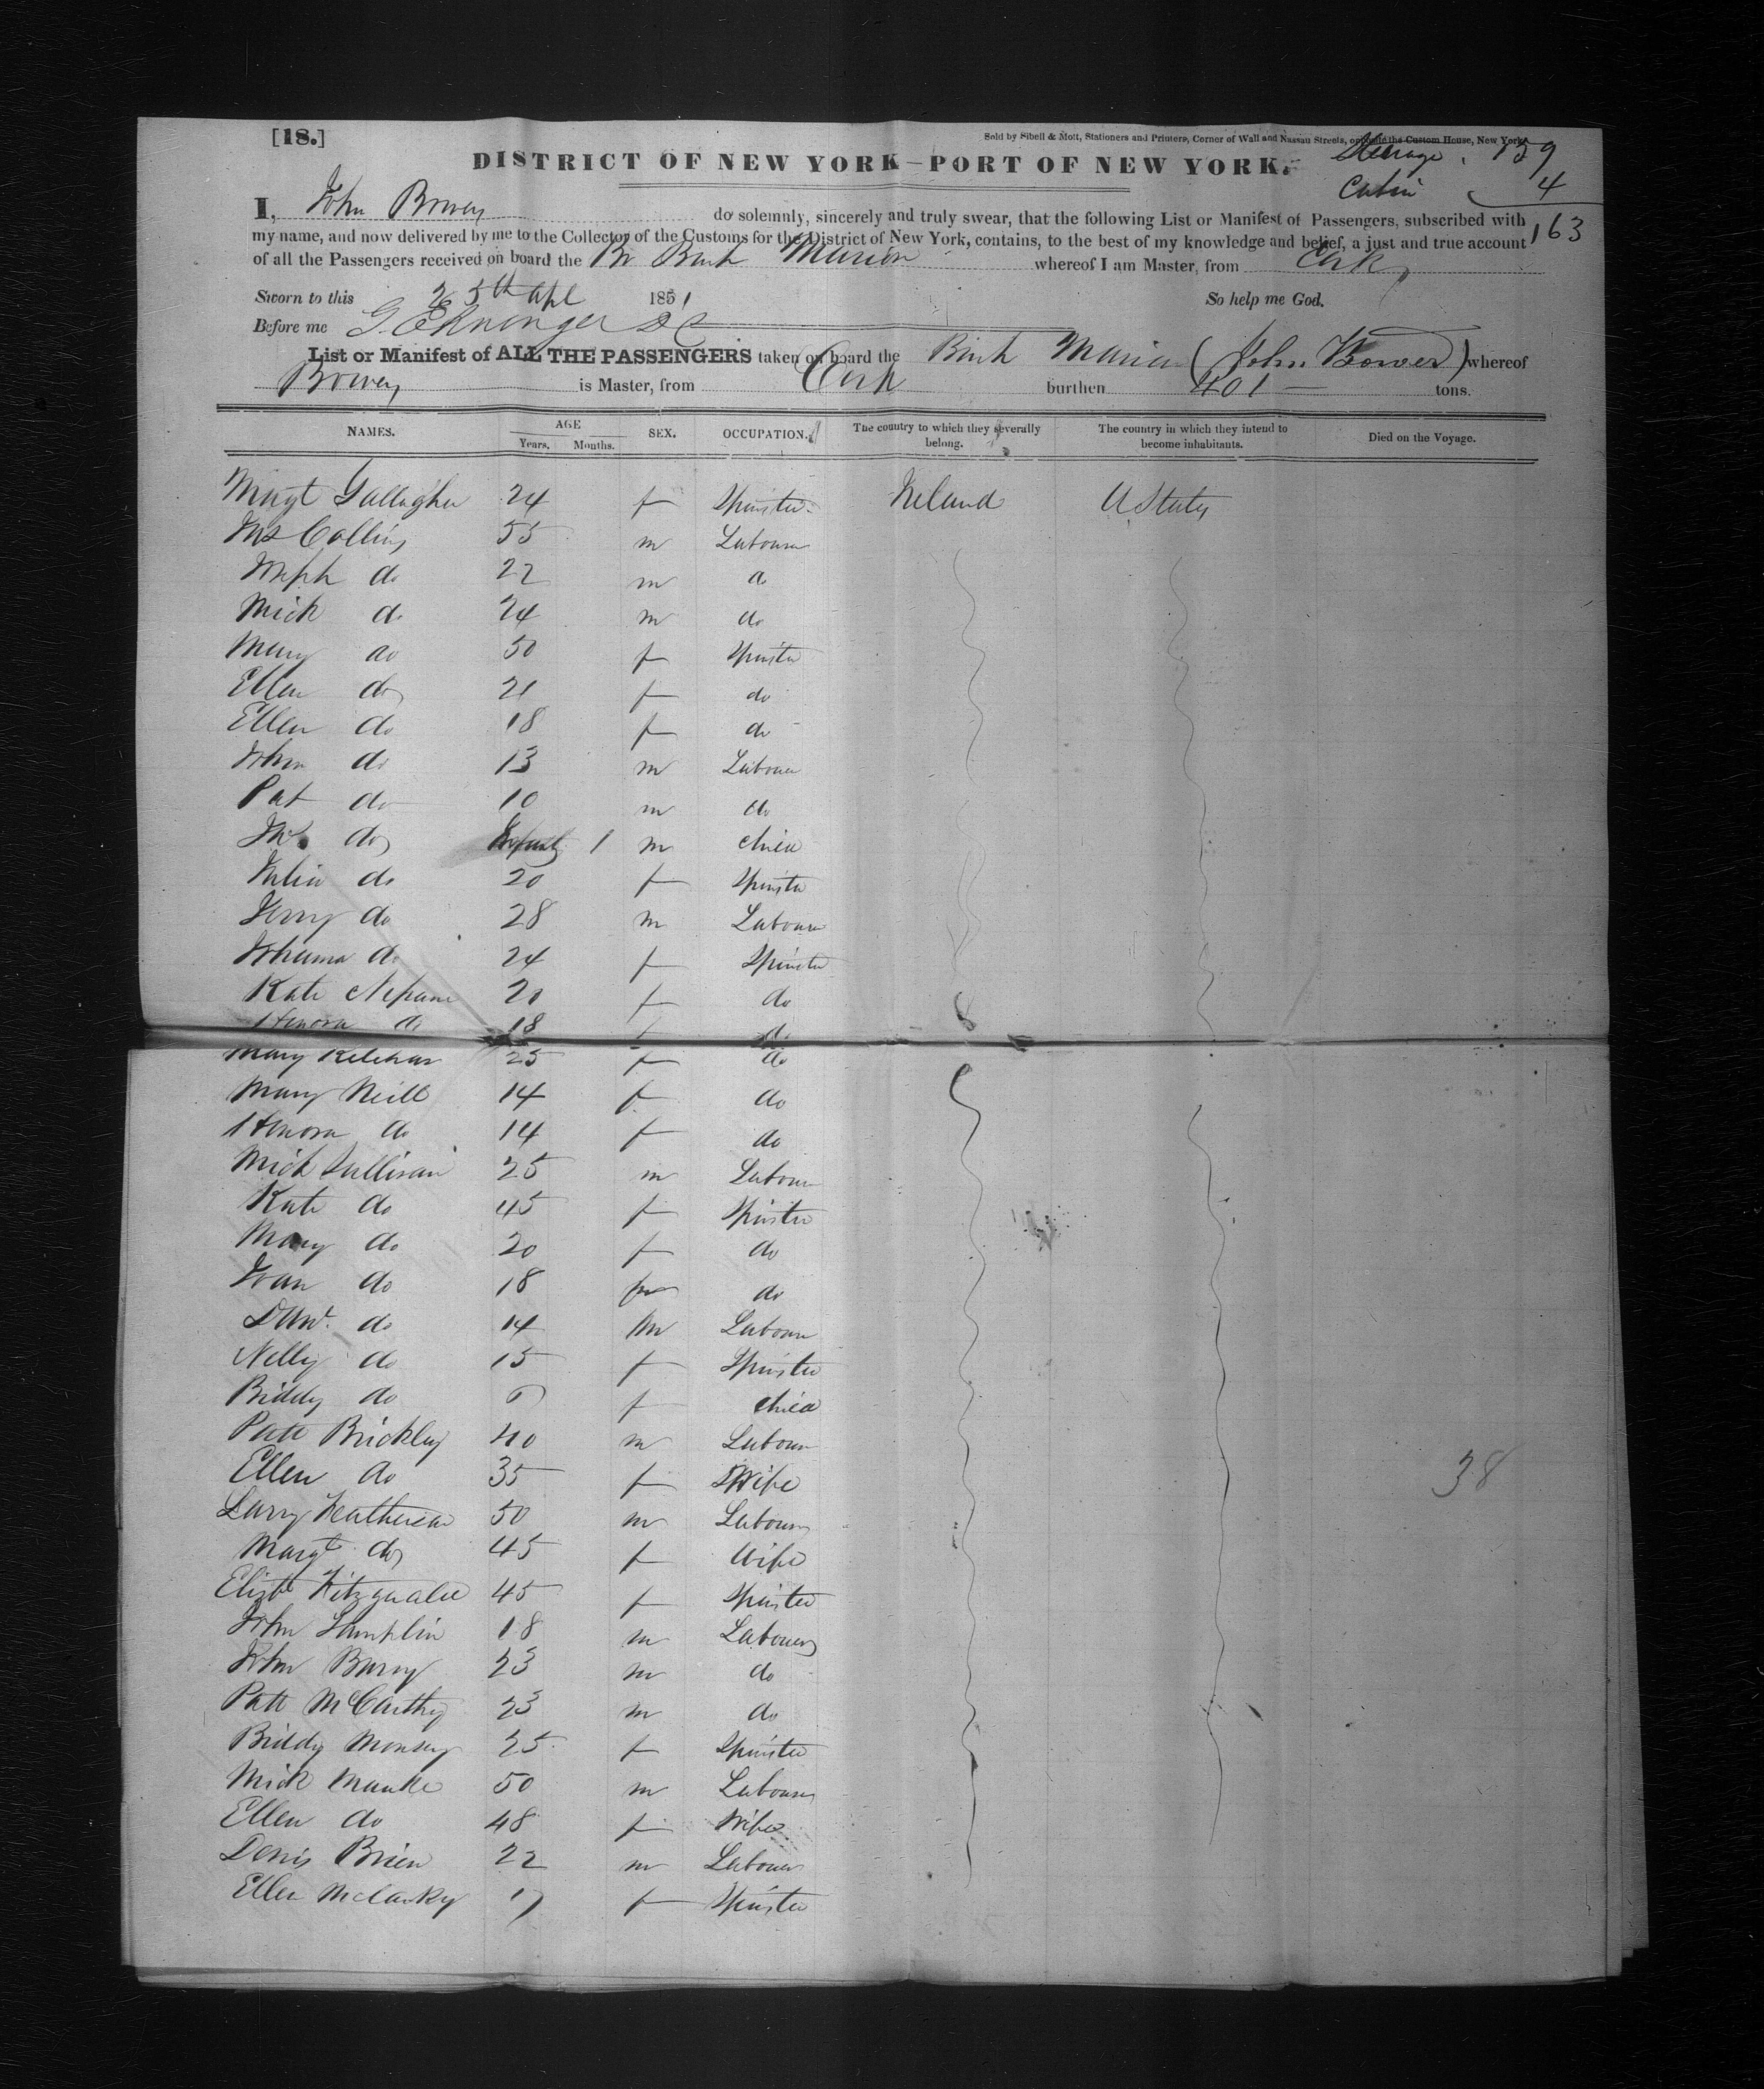 [18.]
Sold by Sibell & Mott, Stationers and Printers, Corner of Wall and Nassau Streets, opposite the Custom House, New York.
DISTRICT OF NEW YORK—PORT OF NEW YORK.
Steerage . 159
Cabin 4
163
I, John Bowen do solemnly, sincerely and truly swear, that the following List or Manifest of Passengers, subscribed with
my name, and now delivered by me to the Collector of the Customs for the District of New York, contains, to the best of my knowledge and belief, a just and true account
of all the Passengers received on board the Br Bark Maria whereof I am Master, from Cork
Sworn to this 25th Apl 1851 So help me God.
Before me
List or Manifest of ALL THE PASSENGERS taken on board the Bark Maria (John Bowen) whereof
Bowen is Master, from Cork burthen 401 — tons.
NAMES. AGE Years. Months. SEX. OCCUPATION. The country to which they severally belong. The country in which they intend to become inhabitants. Died on the Voyage.
Margt Gallagher 24 f Spinster Ireland U States
Jas Collins 55 m Labourer
Joseph do 22 m do
Mick do 24 m do
Mary do 50 f Spinster
Ellen do 21 f do
Ellen do 18 f do
John do 13 m Labourer
Pat do 10 m do
do Infant 1 m child
Julia do 20 f Spinster
Jerry do 28 m Labourer
Johanna do 24 f Spinster
Kate 20 f do
Honora do 18 f do
Mary 25 f do
Mary Neill 14 f do
Honora do 14 f do
Mick Sullivan 25 m Labourer
Kate do 45 f Spinster
Mary do 20 f do
Joan do 18 f do
do 14 m Labourer
Nelly do 15 f Spinster
Biddy do f child
Patt Brickley 40 m Labourer
Ellen do 35 f Wife
Larry 50 m Labourer
Margt do 45 f Wife
Elizth Fitzgerald 45 f Spinster
John 18 m Labourer
John Barry 23 m do
Patt McCarthy 23 m do
Biddy 25 f Spinster
Mick 50 m Labourer
Ellen do 48 f Wife
Denis Brien 22 m Labourer
Ellen 17 f Spinster
38